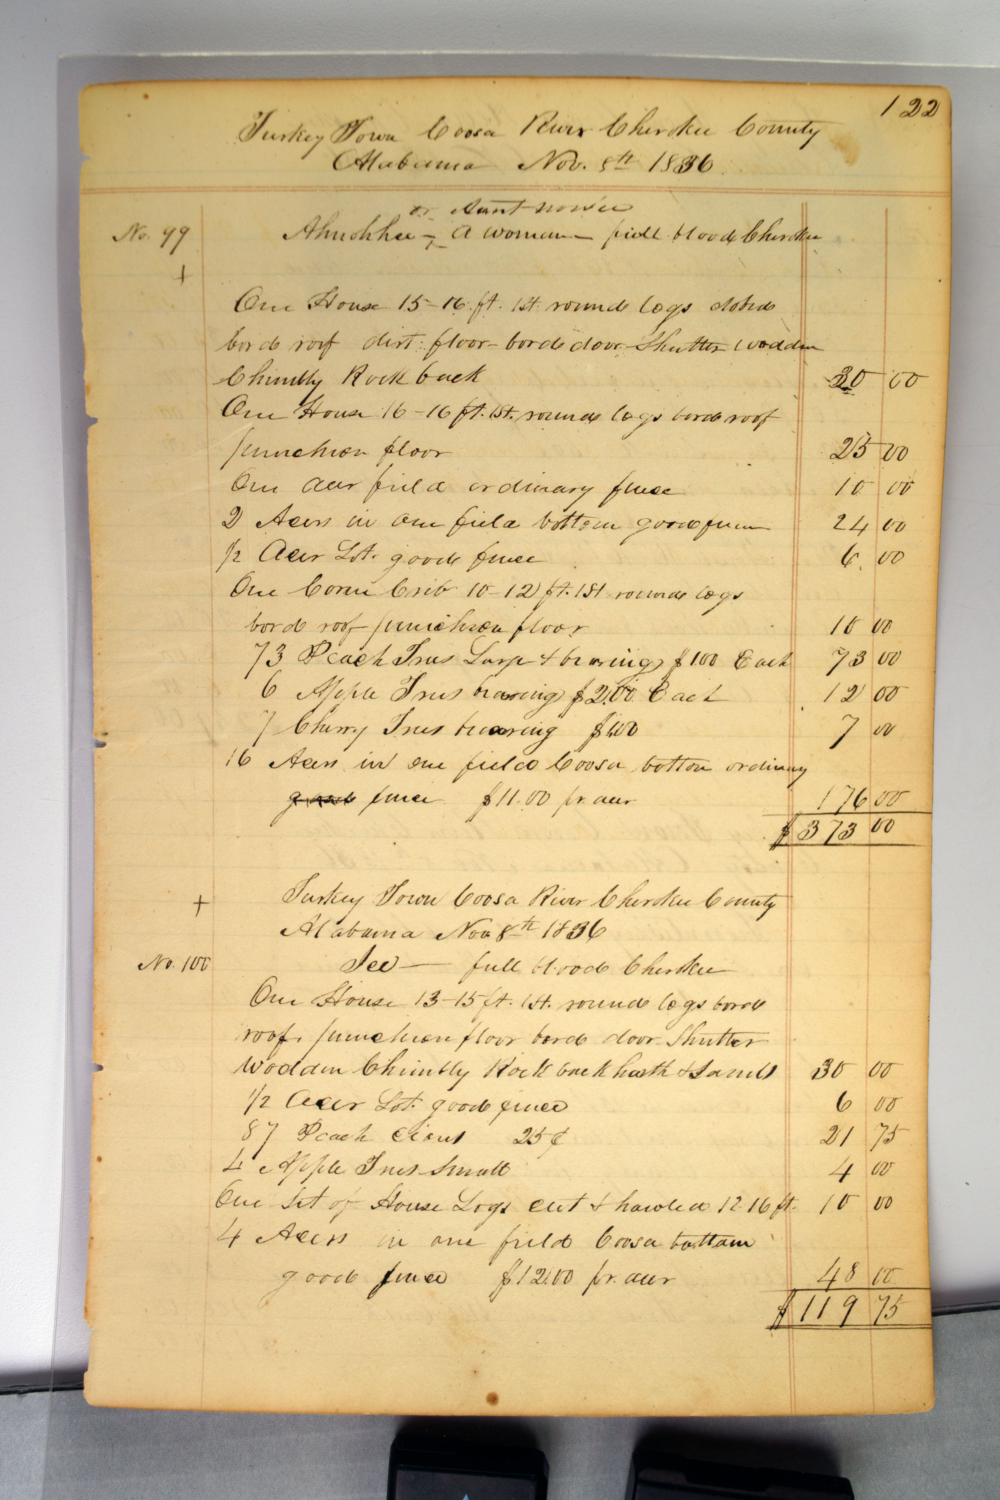 122
Turkey Town Coosa River Cherokee County
Alabama Nov. 8th 1836
or Aunt
No. 99 Ahnohhee - A woman - full blood Cherokee
+
One House 15-16 ft. 1st. round logs
bord roof dirt floor - bord door Shutter wodden
Chimbly Rock back 30 00
One House 16-16 ft. 1st. round logs bord roof
puncheon floor 25 00
One acer field ordinary fence 10 00
2 Acers in one field bottom good fence 24 00
1/2 Acer Lot. good fence 6.00
One Corn Crib 10-12 ft. 1st round logs
bord roof puncheon floor 10 00
73 Peach Trees Large & bearing $100 Each 73 00
6 Apple Trees bearing $2.00 Each 12 00
7 Cherry Trees bearing $1.00 7 00
16 Acers in one field Coosa bottom ordinary
good fence $11.00 pr. acer 176 00
$373 00
+ Turkey Town Coosa River Cherokee County
Alabama Nov 8th 1836
No. 100 — full blood Cherokee
One House 13-15 ft. 1st. round logs bord
roof, puncheon floor bord door Shutter
wodden Chimbly Rock back harth & 30 00
1/2 Acer Lot. good fence 6 00
87 Peach 25¢ 21 75
4 Apple Trees Small 4 00
One Set of House Logs cut & hawled 12-16 ft. 10 00
4 Acers in one field Coosa bottom
good fence $12.00 pr. acer 48 00
$119 75